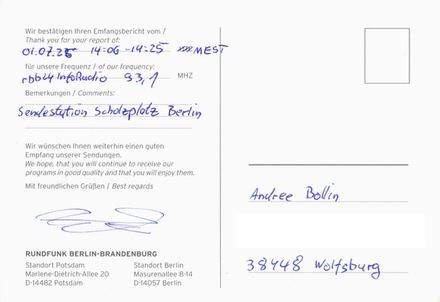 Wir bestätigen Ihren Empfangsbericht vom /
Thank you for your report of:
01.07.25 14:06-14:25 MEST
für unsere Frequenz / of our frequency:
rbb24 InfoRadio 93,1 MHZ
Bemerkungen / Comments:
Sendestation Scholzplatz Berlin
Wir wünschen Ihnen weiterhin einen guten
Empfang unserer Sendungen.
We hope, that you will continue to receive our
programs in good quality and that you will enjoy them.
Mit freundlichen Grüßen / Best regards
RUNDFUNK BERLIN-BRANDENBURG
Standort Potsdam Standort Berlin
Marlene-Dietrich-Allee 20 Masurenallee 8-14
D-14482 Potsdam D-14057 Berlin
Andree Bollin
38448 Wolfsburg